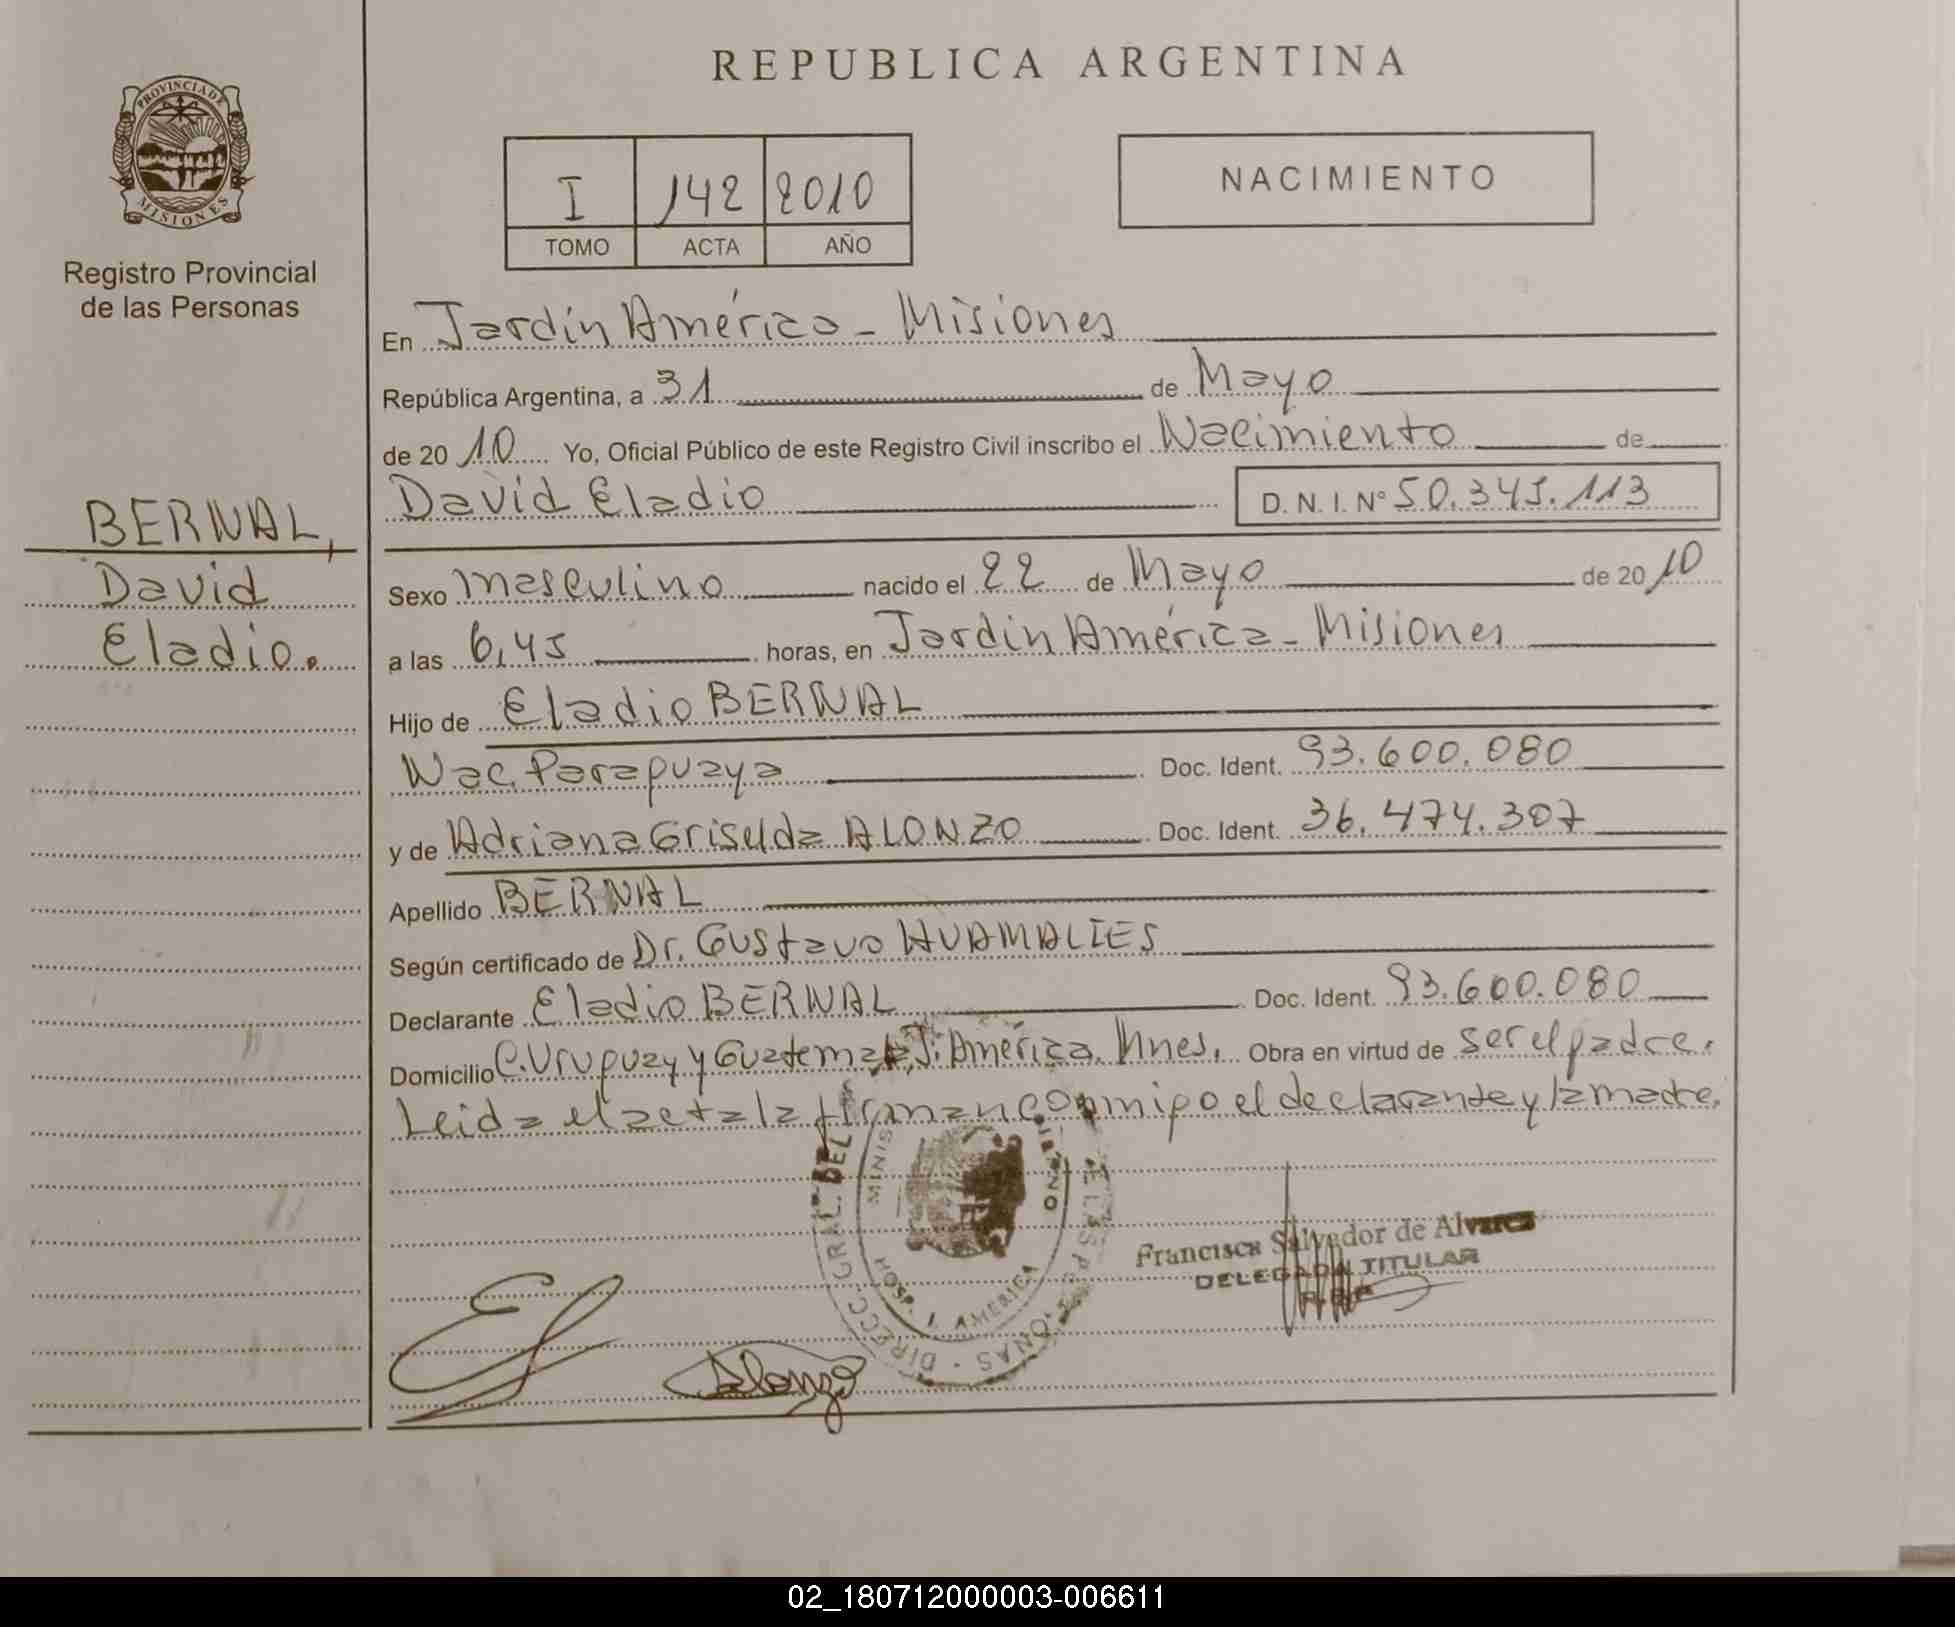 REPUBLICA ARGENTINA
PROVINCIA DE
MISIONES
Registro Provincial
de las Personas
I 142 2010
TOMO ACTA AÑO
NACIMIENTO
En Jardín América - Misiones
República Argentina, a 31 de Mayo
de 20 10 Yo, Oficial Público de este Registro Civil inscribo el Nacimiento de
David Eladio D. N. I. Nº 50.345.113
BERNAL,
David
Eladio.
Sexo masculino nacido el 22 de Mayo de 20 10
a las 6,45 horas, en Jardín América - Misiones
Hijo de Eladio BERNAL
Nac. Paraguaya Doc. Ident. 93.600.080
y de Adriana Griselda ALONZO Doc. Ident. 36.474.307
Apellido BERNAL
Según certificado de Dr. Gustavo HUAMALIES
Declarante Eladio BERNAL Doc. Ident. 93.600.080
Domicilio C. Uruguay y Guatemala, J. América. Mnes. Obra en virtud de ser el padre.
Leida el acta la firman conmigo el declarante y la madre.
DIRECC. GRAL. DEL
HOSP. J. AMERICA
Francisca Salvador de Alvarez
DELEGADA TITULAR
Alonzo
02_180712000003-006611